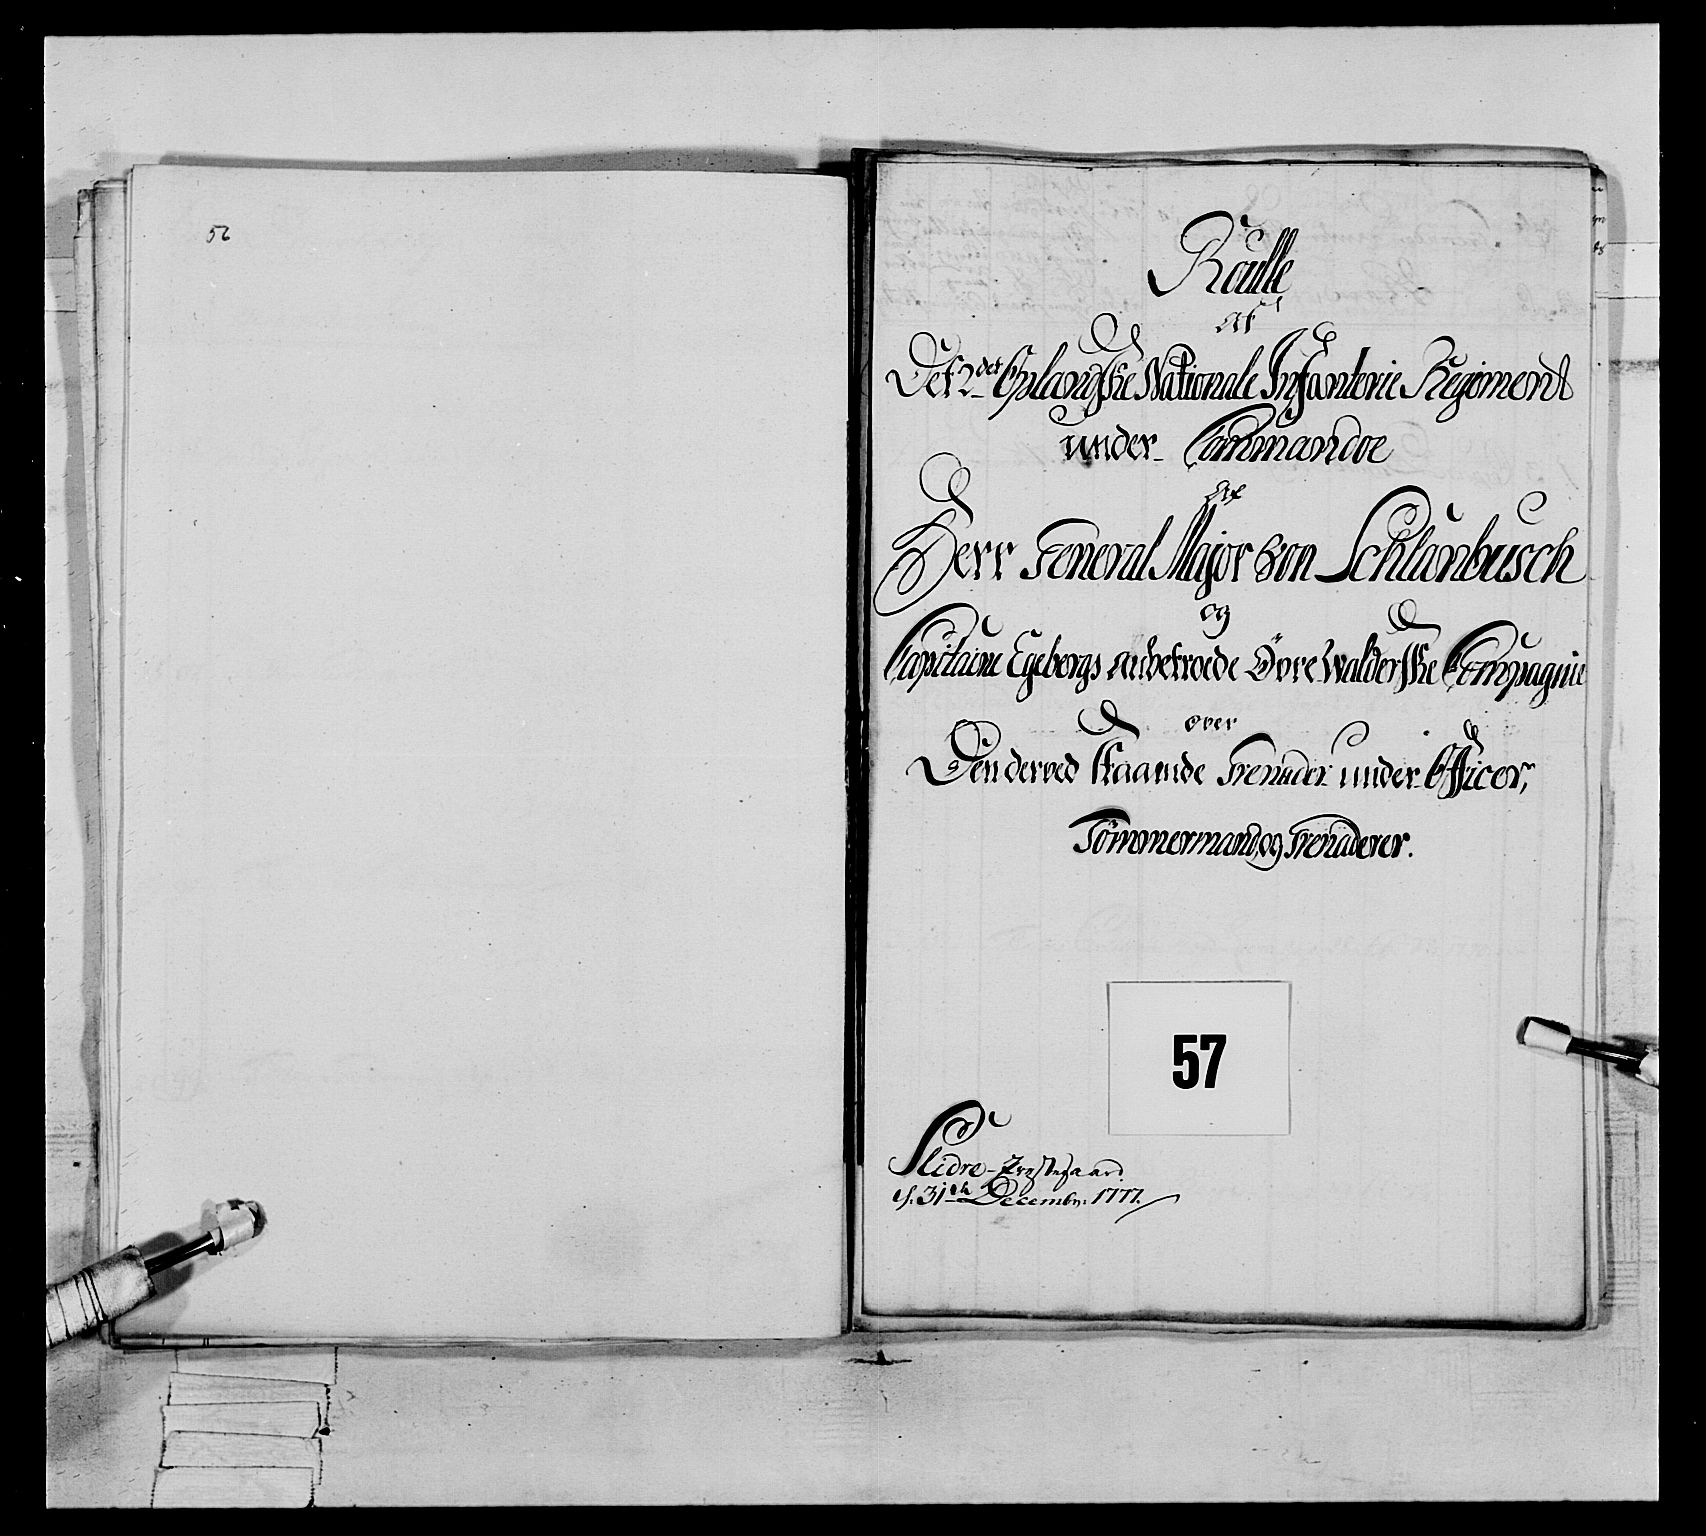 56
Roulle
af
Det 2det Oplandske Nationale Infanterie Regiment
under Commandoe
af
Herr General Major von Schlanbusch
og
Capitaine Egebergs anbetroede Øvre Walderske Compagnie
over
Den derved staaende Grenader under Officer,
Tømmermand, og Grenaderer.
57
Slidre
d. 31te Decembr: 1777.